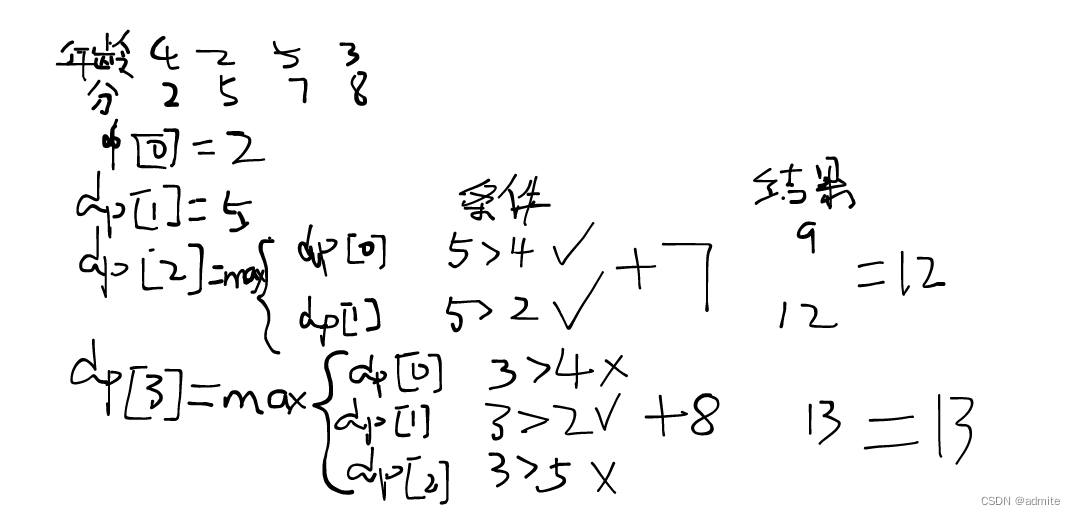 年龄 4 2 5 3
分 2 5 7 8
dp[0]=2
dp[1]=5
条件 结果
dp[2]=max{ dp[0] 5>4 ✓ +7 9 =12
dp[1] 5>2 ✓ 12
dp[3]=max{ dp[0] 3>4 ×
dp[1] 3>2 ✓ +8 13 =13
dp[2] 3>5 ×
CSDN @admite